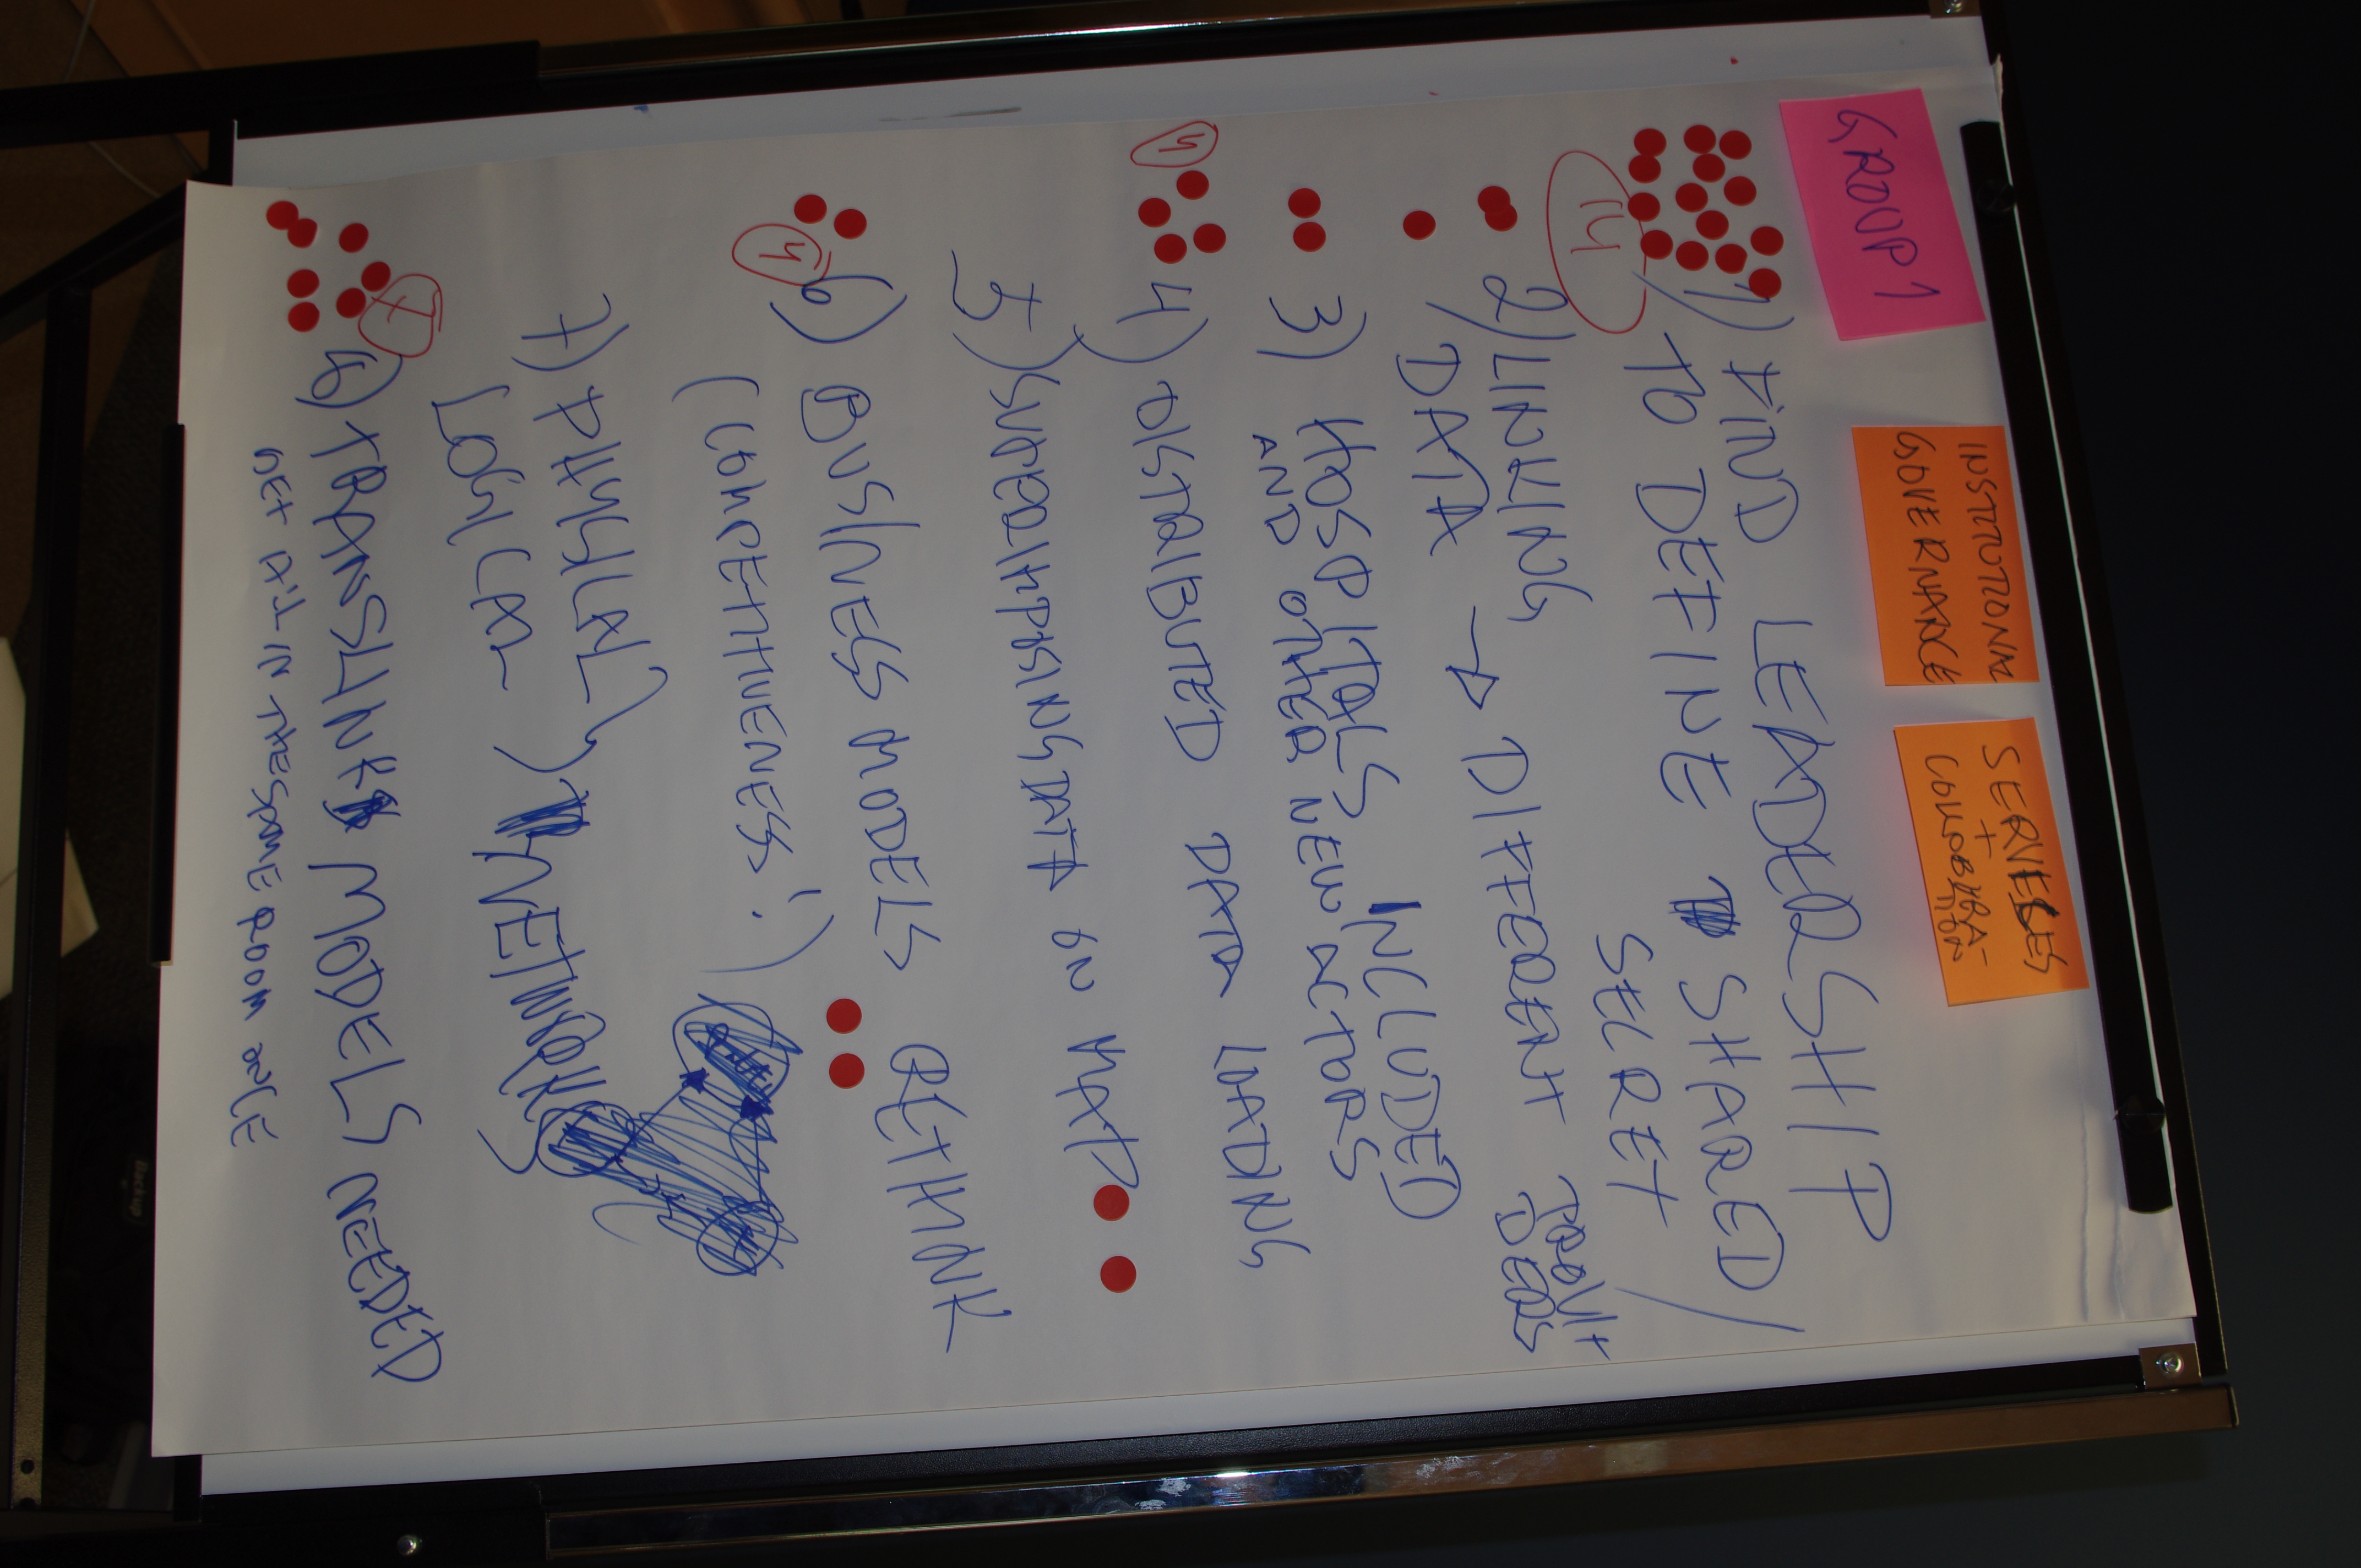 GROUP 1
INSTITUTIONAL
GOVERNANCE
SERVICES
+
COLLOBORA-
TION
1) FIND LEADERSHIP
TO DEFINE SHARED/
SECRET
14
2) LINKING
DATA → DIFFERENT
3) HOSPITALS INCLUDED
AND OTHER NEW ACTORS
4
4) DISTRIBUTED DATA LOADING
5) SUPERIMPOSING DATA ON MAP
6) BUSINESS MODELS RETHINK
4
(COMPETITIVENESS!)
7) PHYSICAL
LOGICAL } NETWORKS
7
8) TRANSLINK MODELS NEEDED
GET ALL IN THE SAME ROOM ONCE
Dickup